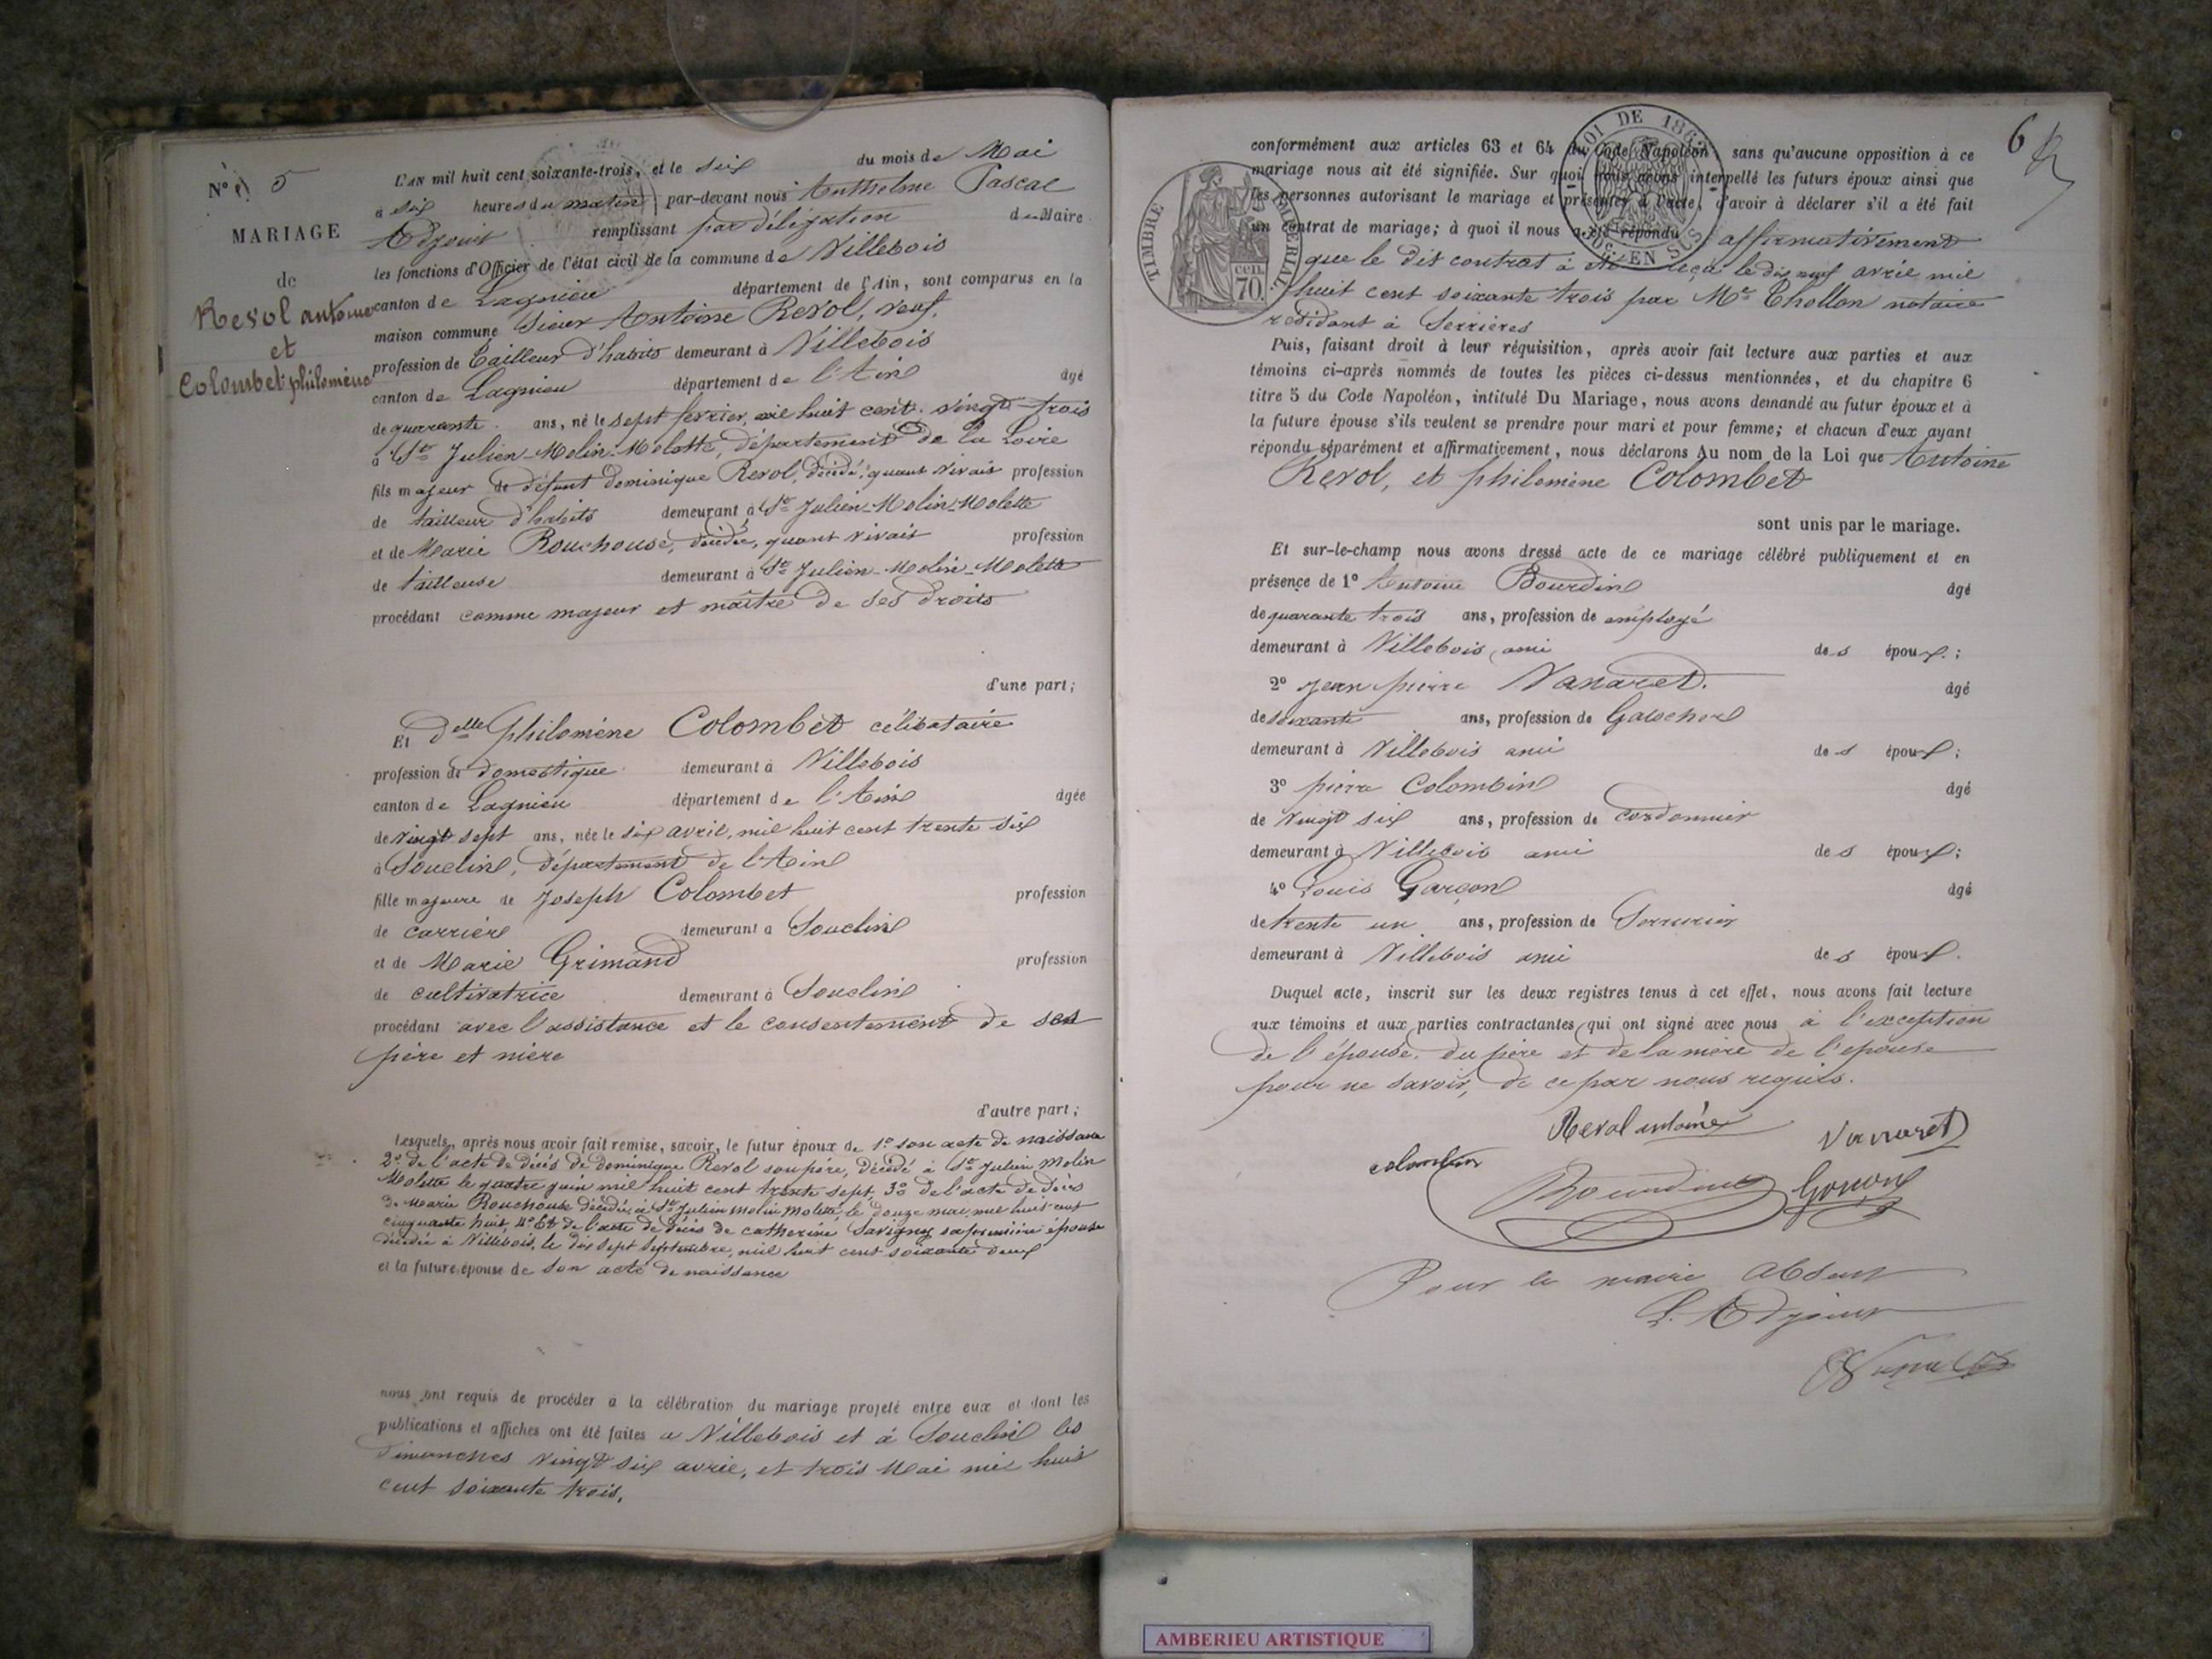 N° 5
MARIAGE
de
Revol antoine
et
Colombet philomène
L'AN mil huit cent soixante-trois, et le six du mois de Mai
à six heures du matin par-devant nous Anthelme Pascal
Adjoint remplissant par délégation du Maire
les fonctions d'Officier de l'état civil de la commune de Villebois
canton de Lagnieu département de l'Ain, sont comparus en la
maison commune Sieur Antoine Revol, veuf,
profession de Tailleur d'habits demeurant à Villebois
canton de Lagnieu département de l'Ain âgé
de quarante ans, né le sept fevrier, mil huit cent vingt-trois
à St Julien-Molin-Molette, département de la Loire
fils majeur de défunt Dominique Revol, décédé, quant vivait profession
de tailleur d'habits demeurant à St Julien-Molin-Molette
et de Marie Rouchouse, décédée, quant vivait profession
de tailleuse demeurant à St Julien-Molin-Molette
procédant comme majeur et maître de ses droits
d'une part;
Et Delle philomène Colombet célibataire
profession de domestique demeurant à Villebois
canton de Lagnieu département de l'Ain âgée
de vingt sept ans, née le six avril, mil huit cent trente six
à Souclin, département de l'Ain
fille majeure de Joseph Colombet profession
de carrier demeurant à Souclin
et de Marie Grimand profession
de cultivatrice demeurant à Souclin
procédant avec l'assistance et le consentement de ses
père et mère
d'autre part;
Lesquels, après nous avoir fait remise, savoir, le futur époux de 1° son acte de naissance
2° de l'acte de décès de Dominique Revol son père, décédé à St Julien Molin
Molette le quatre juin mil huit cent trente sept, 3° de l'acte de décès
de Marie Rouchouse décédée à St Julien Molin Molette, le douze mai mil huit cent
cinquante huit, 4° et de l'acte de décès de catherine Savigny sa première épouse
décédée à Villebois, le dix sept Septembre, mil huit cent soixante deux
et la future épouse de son acte de naissance
nous ont requis de procéder à la célébration du mariage projeté entre eux et dont les
publications et affiches ont été faites à Villebois et à Souclin les
dimanches vingt six avril, et trois Mai mil huit
cent soixante trois.
6
TIMBRE IMPÉRIAL
70
LOI DE 186
EN SUS
conformément aux articles 63 et 64 du Code Napoléon, sans qu'aucune opposition à ce
mariage nous ait été signifiée. Sur quoi nous avons interpellé les futurs époux ainsi que
les personnes autorisant le mariage et présentes à l'acte, d'avoir à déclarer s'il a été fait
un contrat de mariage; à quoi il nous a été répondu affirmativement
que le dit contrat à été reçu le dix neuf avril mil
huit cent soixante trois par Me Thollon notaire
résidant à Serrières
Puis, faisant droit à leur réquisition, après avoir fait lecture aux parties et aux
témoins ci-après nommés de toutes les pièces ci-dessus mentionnées, et du chapitre 6
titre 5 du Code Napoléon, intitulé Du Mariage, nous avons demandé au futur époux et à
la future épouse s'ils veulent se prendre pour mari et pour femme; et chacun d'eux ayant
répondu séparément et affirmativement, nous déclarons Au nom de la Loi que Antoine
Revol, et philomène Colombet
sont unis par le mariage.
Et sur-le-champ nous avons dressé acte de ce mariage célébré publiquement et en
présence de 1° Antoine Bourdin âgé
de quarante trois ans, profession de employé
demeurant à Villebois ami des époux;
2° Jean pierre Vanaret. âgé
de soixante ans, profession de Galocher
demeurant à Villebois ami des époux;
3° pierre Colombin âgé
de vingt six ans, profession de Cordonnier
demeurant à Villebois ami des époux;
4° Louis Garçon âgé
de trente un ans, profession de Serrurier
demeurant à Villebois ami des époux.
Duquel acte, inscrit sur les deux registres tenus à cet effet, nous avons fait lecture
aux témoins et aux parties contractantes qui ont signé avec nous à l'exception
de l'épouse, du père et de la mère de l'epouse
pour ne savoir, de ce par nous requis.
Revol antoine
Vanaret
colombin
Bourdin
Pour le maire absent
L'Adjoint
AMBERIEU ARTISTIQUE